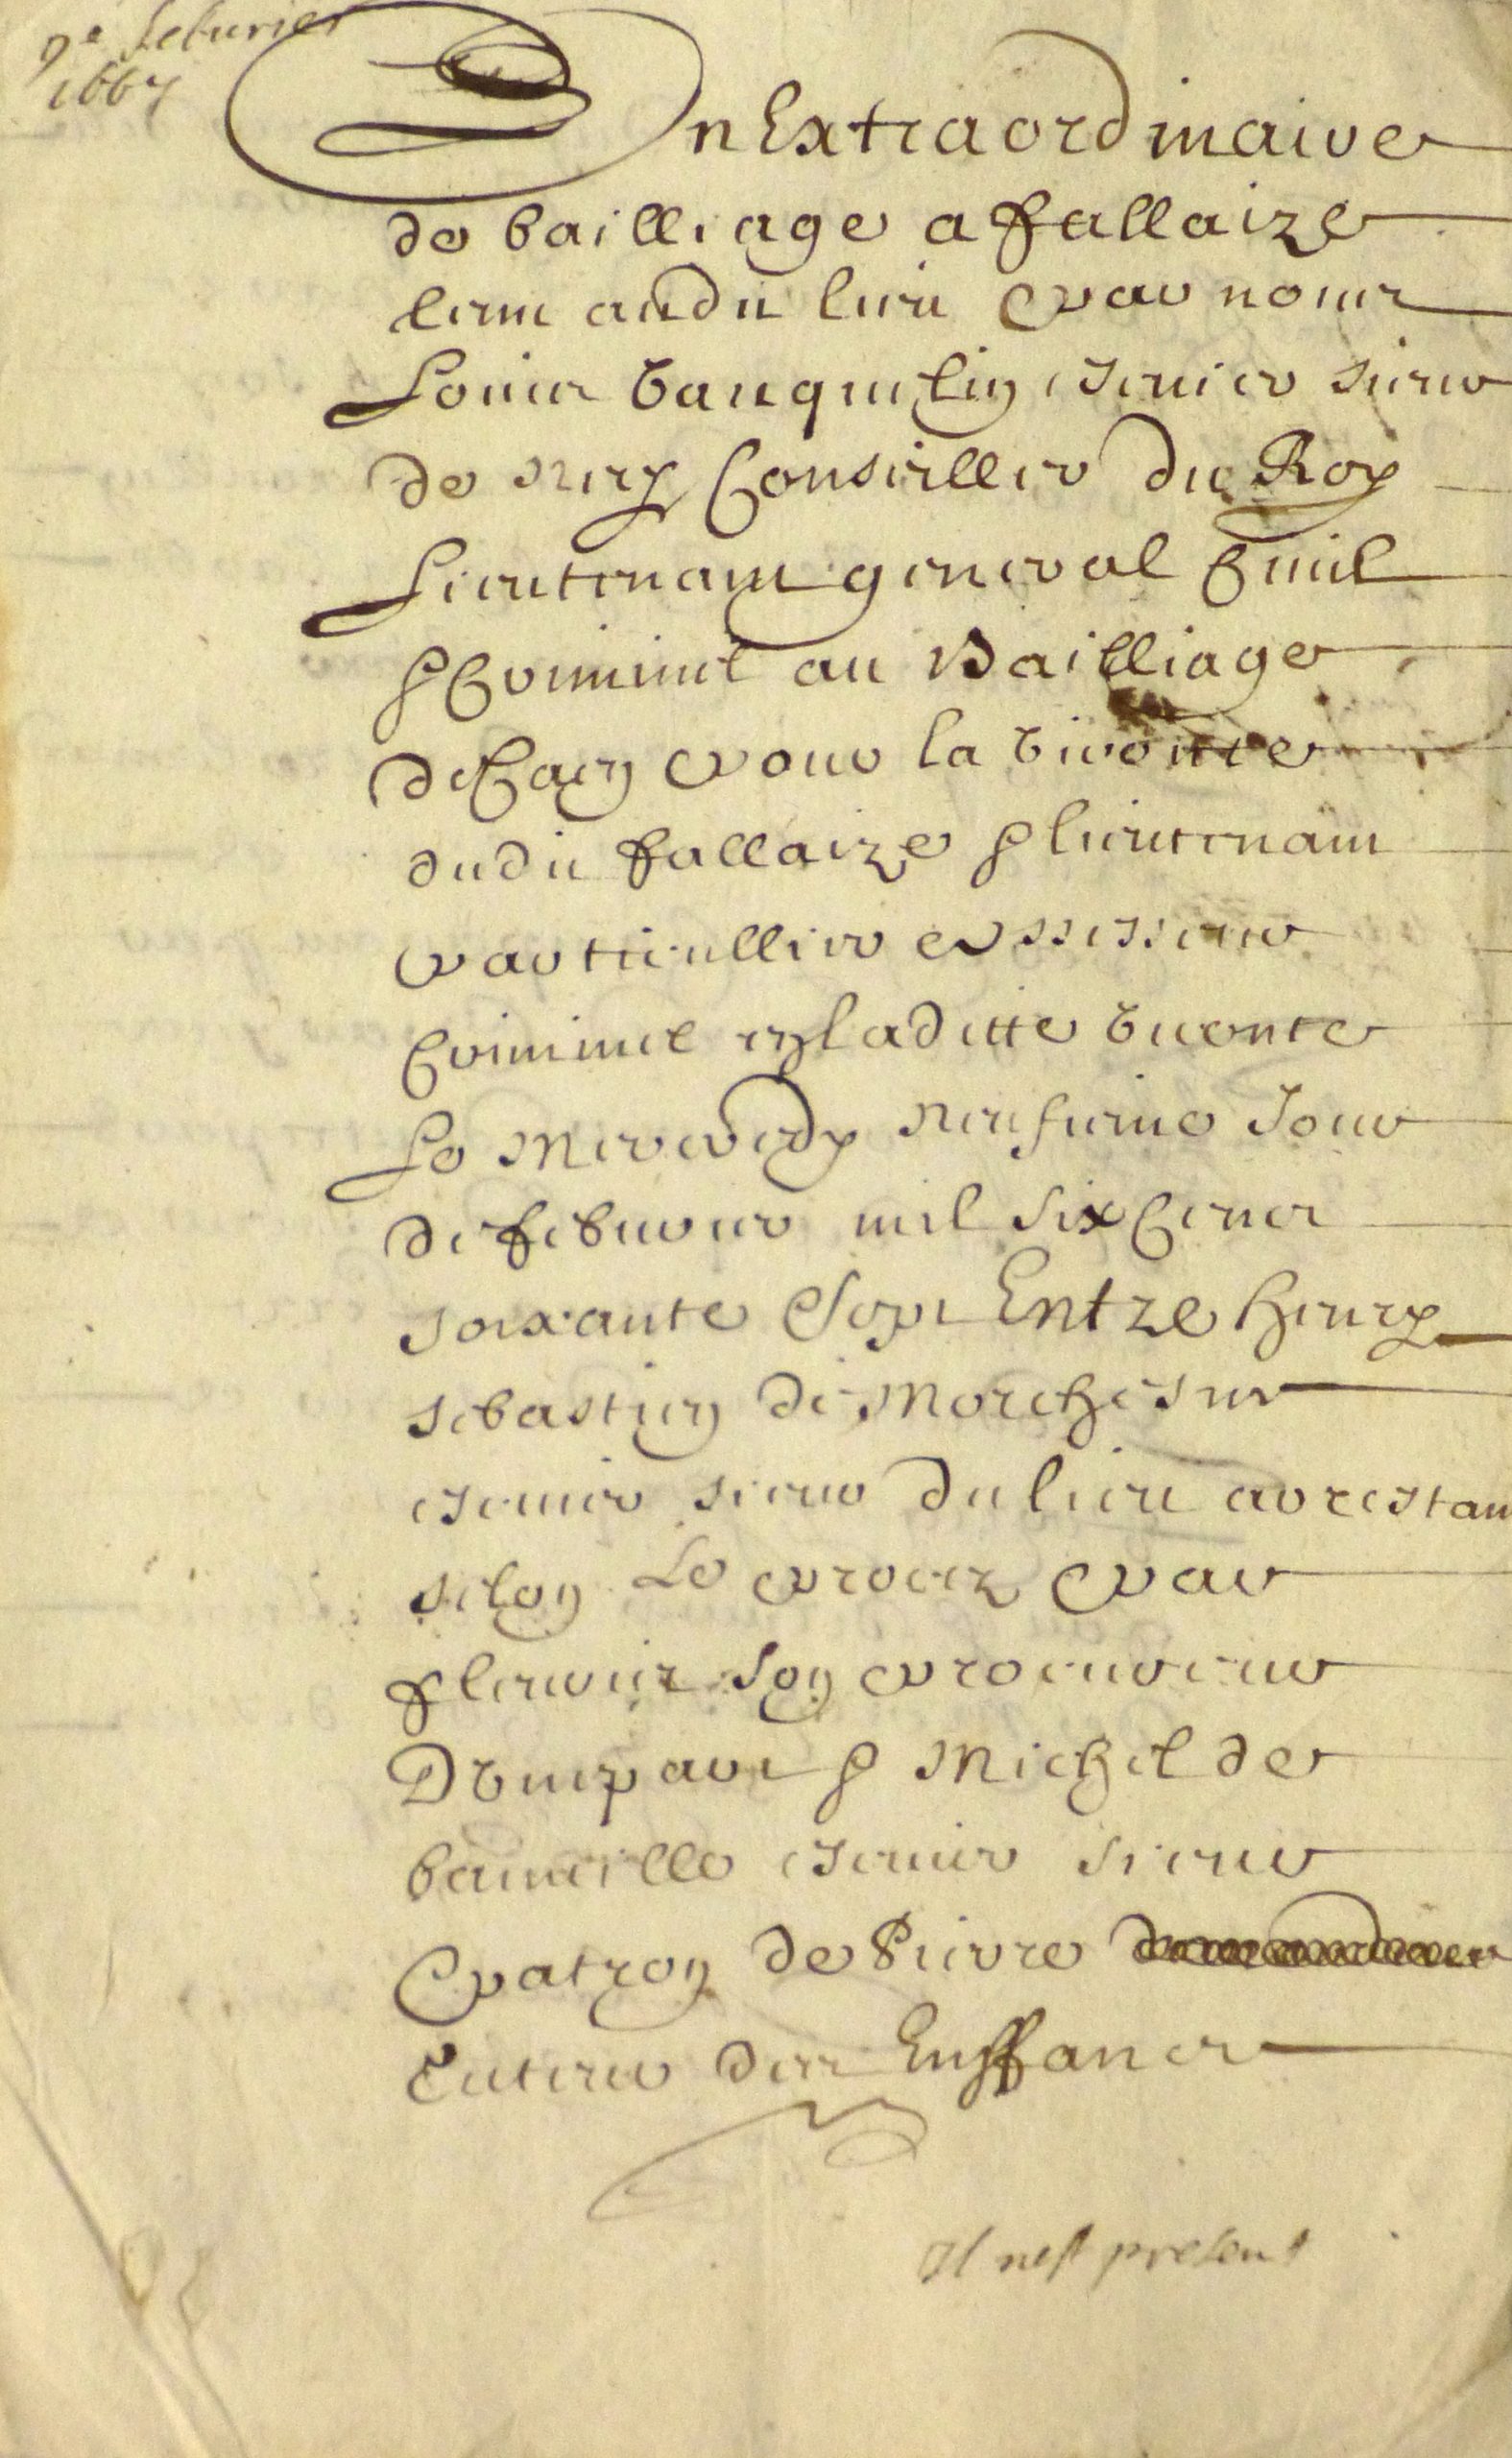 9e febvrier
1667
En Extraordinaire
de bailliage a ffallaize
tenu audit lieu par nous
Louis Vauquelin escuier sieur
de Conseiller du Roy
Lieutenant general Civil
& Criminel au Bailliage
de Caen pour la viconte
dudit ffallaize & lieutenant
particullier assesseur
Criminel en laditte viconte
Le Mercredy neufieme Jour
de febvrier mil six Centz
soixante & sept Entre Henry
sebastien de Morchesne
escuier sieur du lieu arrestant
selon le procez par
son procureur
D'une part & Michel de
escuier sieur
& patron de Pierre
tuteur des Enffans
Il nest present